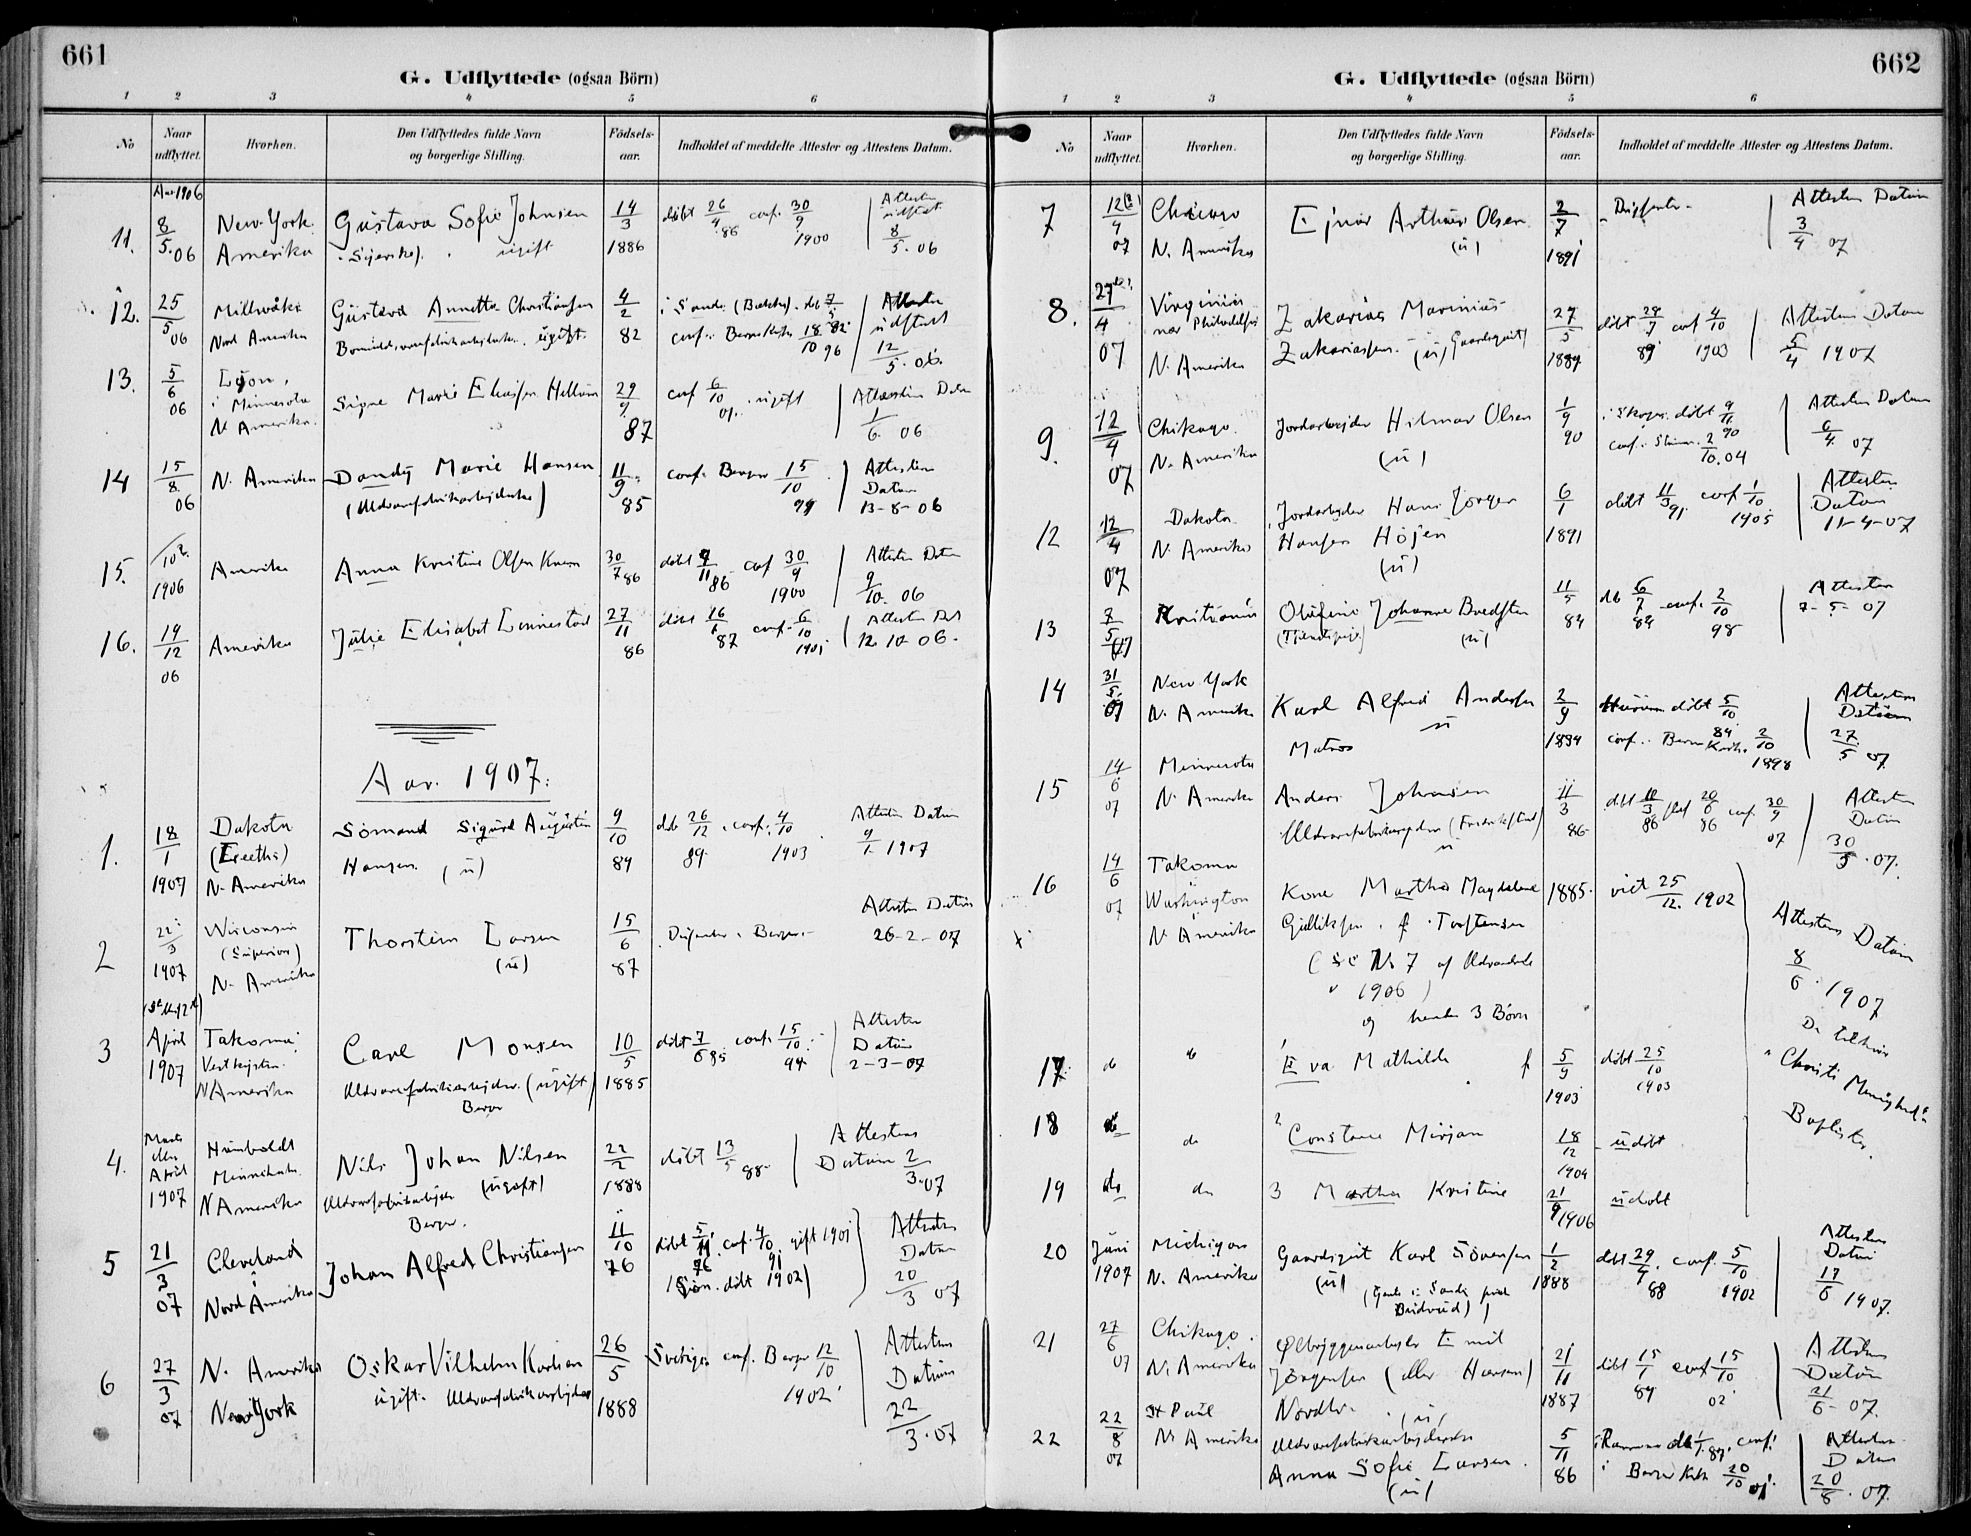 661
G. Udflyttede (ogsaa Börn)
1 2 3 4 5 6
No
Naar udflyttet.
Hvorhen.
Den Udflyttedes fulde Navn og borgerlige Stilling.
Födselsaar.
Indholdet af meddelte Attester og Attestens Datum.
Aar 1906
11. 8/5.06 New-York Amerika Gustava Sofie Johnsen ugift 14/3 1886 döbt 26/4.86 conf. 30/9 1900 Attesten udstedt 8/5.06
12. 25/5 06 Millwåke Nord Amerika Gustava Annette Christiansen ugift. 4/2 82 i Sande döb 7/5 82 conf. i 18/10 96 Attesten udstedt 12/5.06.
13. 5/6 06 Lyon, i Minnesota N Amerika. Signe Marie Eliassen Hellum 29/9 87 conf 6/10 01. ugift Attestens Datum 1/6 06
14 15/8 06 N. Amerika Dandy Marie Hansen (Uldvarefabrikarbejderske) 11/9 85 conf. Berger 15/10 99 Attesten Datum 13-8-06
15. 10 1906 Amerika Anna Kristine Olsen 30/7 86 döbt 9/11 86 conf 30/9 1900 Attesten Datum 9/10. 06
16. 14/12 06 Amerika Julie Elisabet Linnestad 27/11 86 döbt 16/1 87 conf. 6/10 1901 Attesten Dat 12 10 06.
Aar. 1907.
1. 18/1 1907 Dakota N. Amerika Sömand Sigurd Augustin Hansen. (u) 9/10 89 döb 26/12 89. conf. 4/10 1903 Attesten Datum 9/1. 1907
2 22/3 1907 Wisconsin (Superior) N. Amerika Thorstein Larsen (u) 15/6 87 Dissenter. Berger. Attesten Datum 26-2-07
3 April 1907 Takoma N Amerika Carl Monsen Uldvarefabrikarbejder. (ugift) Berger 10/5 1885 döbt 7/6 85 conf. 15/10. 99 Attesten Datum 2-3-07
4. Marts eller April 1907 Humboldt N Amerika Nils Johan Nilsen Uldvarefabrikarbejder (ugift) Berger. 22/2 1888 döbt 13/5 88 Attestens Datum 2/3.07
5 21/3 07 Cleveland i Nord Amerika Johan Alfred Christiansen 11/10 76 döbt 5/11 76 conf. 4/10 91 gift 1901 döbt 1902) Attestens Datum 20/3 07
6 27/3 07 N. Amerika New York Oskar Vilhelm Karlsen ugift. Uldvarefabrikarbejder 26/5 1888 Sverige conf. Berger 12/10 1902 Attestens Datum 22/3.07
662
G. Udflyttede (ogsaa Börn)
1 2 3 4 5 6
No
Naar udflyttet.
Hvorhen.
Den Udflyttedes fulde Navn og borgerlige Stilling.
Födselsaar.
Indholdet af meddelte Attester og Attestens Datum.
7 12/4 07 Chicago N. Amerika Ejnar Arthur Olsen (u) 2/7 1891 Dissenter. Attestens Datum 3/4 07
8. 27/4 07 Virginien nær Philadelfia N. Amerika Zakarias Marinius Zakariassen. (u) Gaardsgut) 27/5 1889 döbt 28/7 89 conf 4/10 1903 Attestens Datum 5/4 1907
9. 12/4 07 Chikago. N. Amerika Jordarbejder Hilmar Olsen (u) 1/9 90 i Skoger. döbt 9/11 90 conf. i 2/10.04 Attestens Datum 6/4 07
12 12/4 07 Dakota N. Amerika Jordarbejder Hans Jörgen Hansen Höjen (u) 6/1 1891 döbt 11/3 91. conf 1/10 1905 Attesten Datum 11-4-07
13 7/5 07 Kristiania Olufine Johanne Bredesen (u) 11/5 84 döb 6/7 84 conf. 2/10 98 Attesten 7-5-07
14 31/5 07 New York N. Amerika Karl Alfred Andersen u Matros 2/9 1884 döbt 5/10 84. conf. i Berger Kirke 2/10 1898 Attestens Datum 27/5 07.
15 14/6 07 Minnesota N. Amerika Anders Johansen u 11/3 86 döbt 20/6 86 conf. 30/9 07 Attesten Datum 30/5.07.
16 14/6 07 Takoma Washington N. Amerika Kone Martha Magdalene Gulliksen. f. Torstensen (se No 7 af Udvandrede 1906) og hendes 3 Börn 1885. viet 25/12. 1902 Attestens Datum 8/6.1907 De tilhör "Christi Menighed" Baptister.
17. do do 1 Eva Mathilde f 5/9 1903 döbt 25/10 1903
18 do do 2 Constance Mirjam 18/12 1904 udöbt
19 do do 3 Martha Kristine 21/9 1906 udöbt
20 Juni 1907 Michigan N. Amerika Gaardsgut Karl Sörensen (u) 1/2 1888 döbt 29/4 88. conf. 5/10 1902 Attestens Datum 17/6 1907.
21 27/6 07 Chikago. N. Amerika Ølbryggeriarbejder Emil Jörgensen (eller Hansen) Nordby. (u) 21/11 1887 döbt 15/1 conf 15/10 02 Attestens Datum 21/6-07.
22 22/8 07 St Paul N. Amerika Uldvarefabrikarbejderske Anna Sofie Larsen. (u) 5/11 86 conf. i Berger Kirke 20/10 01. Attestens Datum 20/8.07.